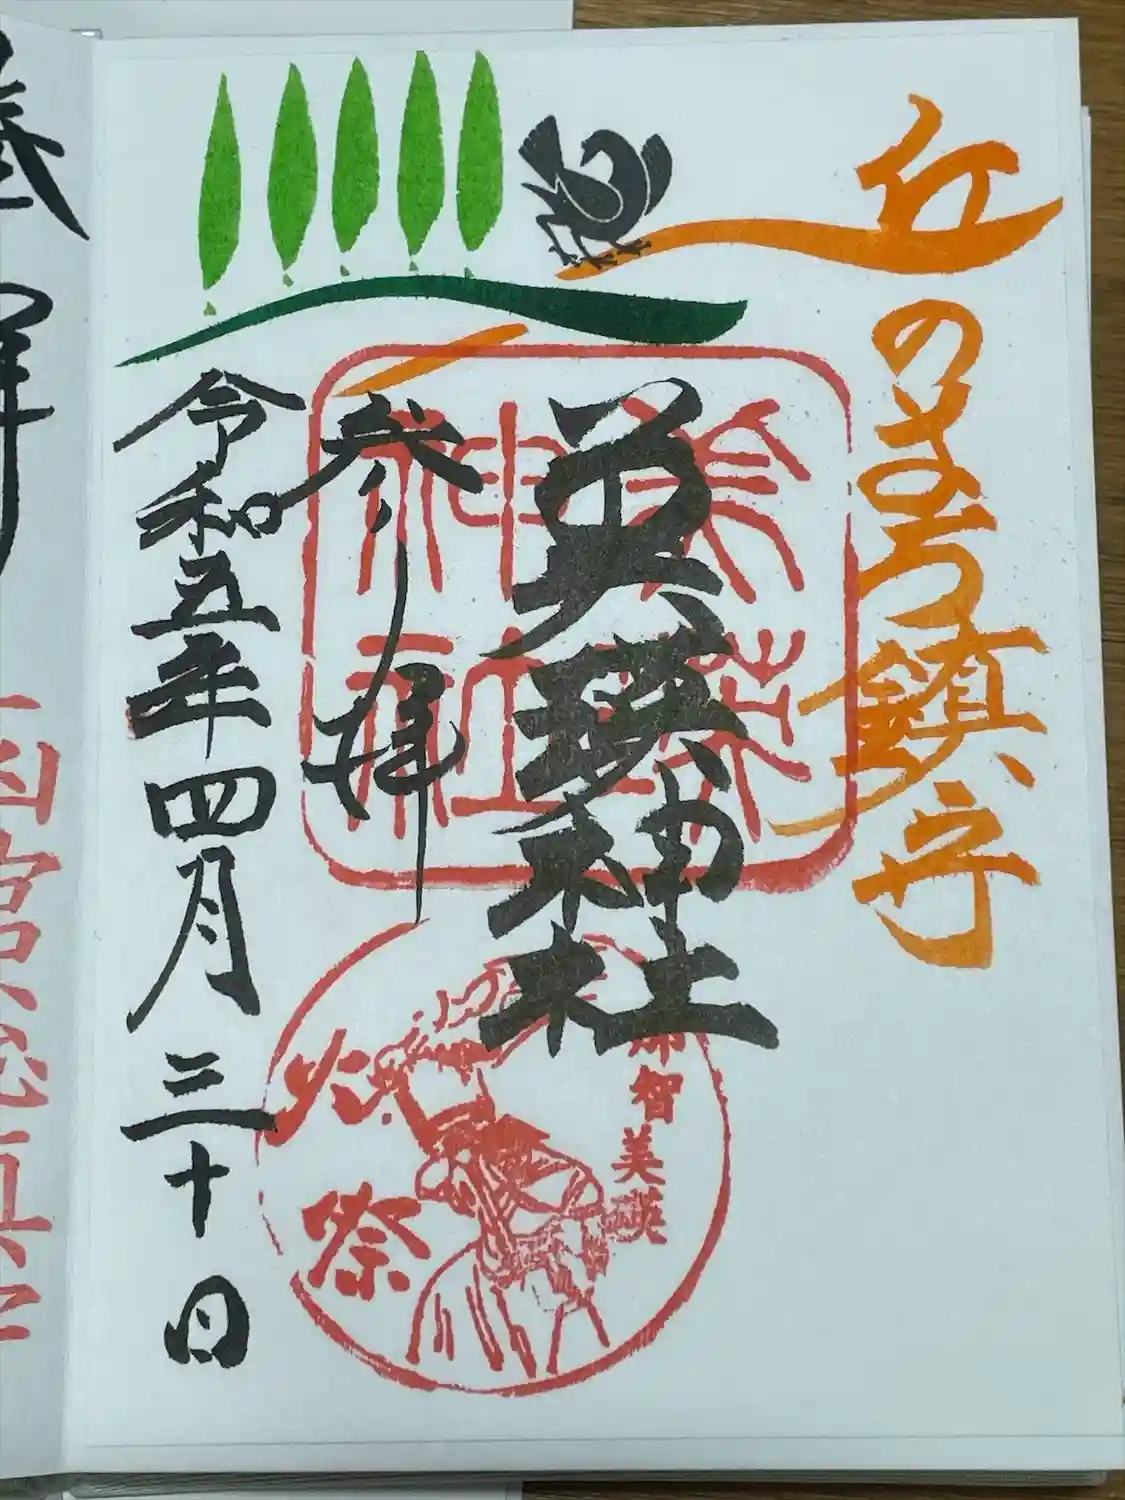 丘のまち鎮守
美瑛神社
美瑛
神社
参拝
令和五年四月三十日
那智美瑛
火祭
奉拝